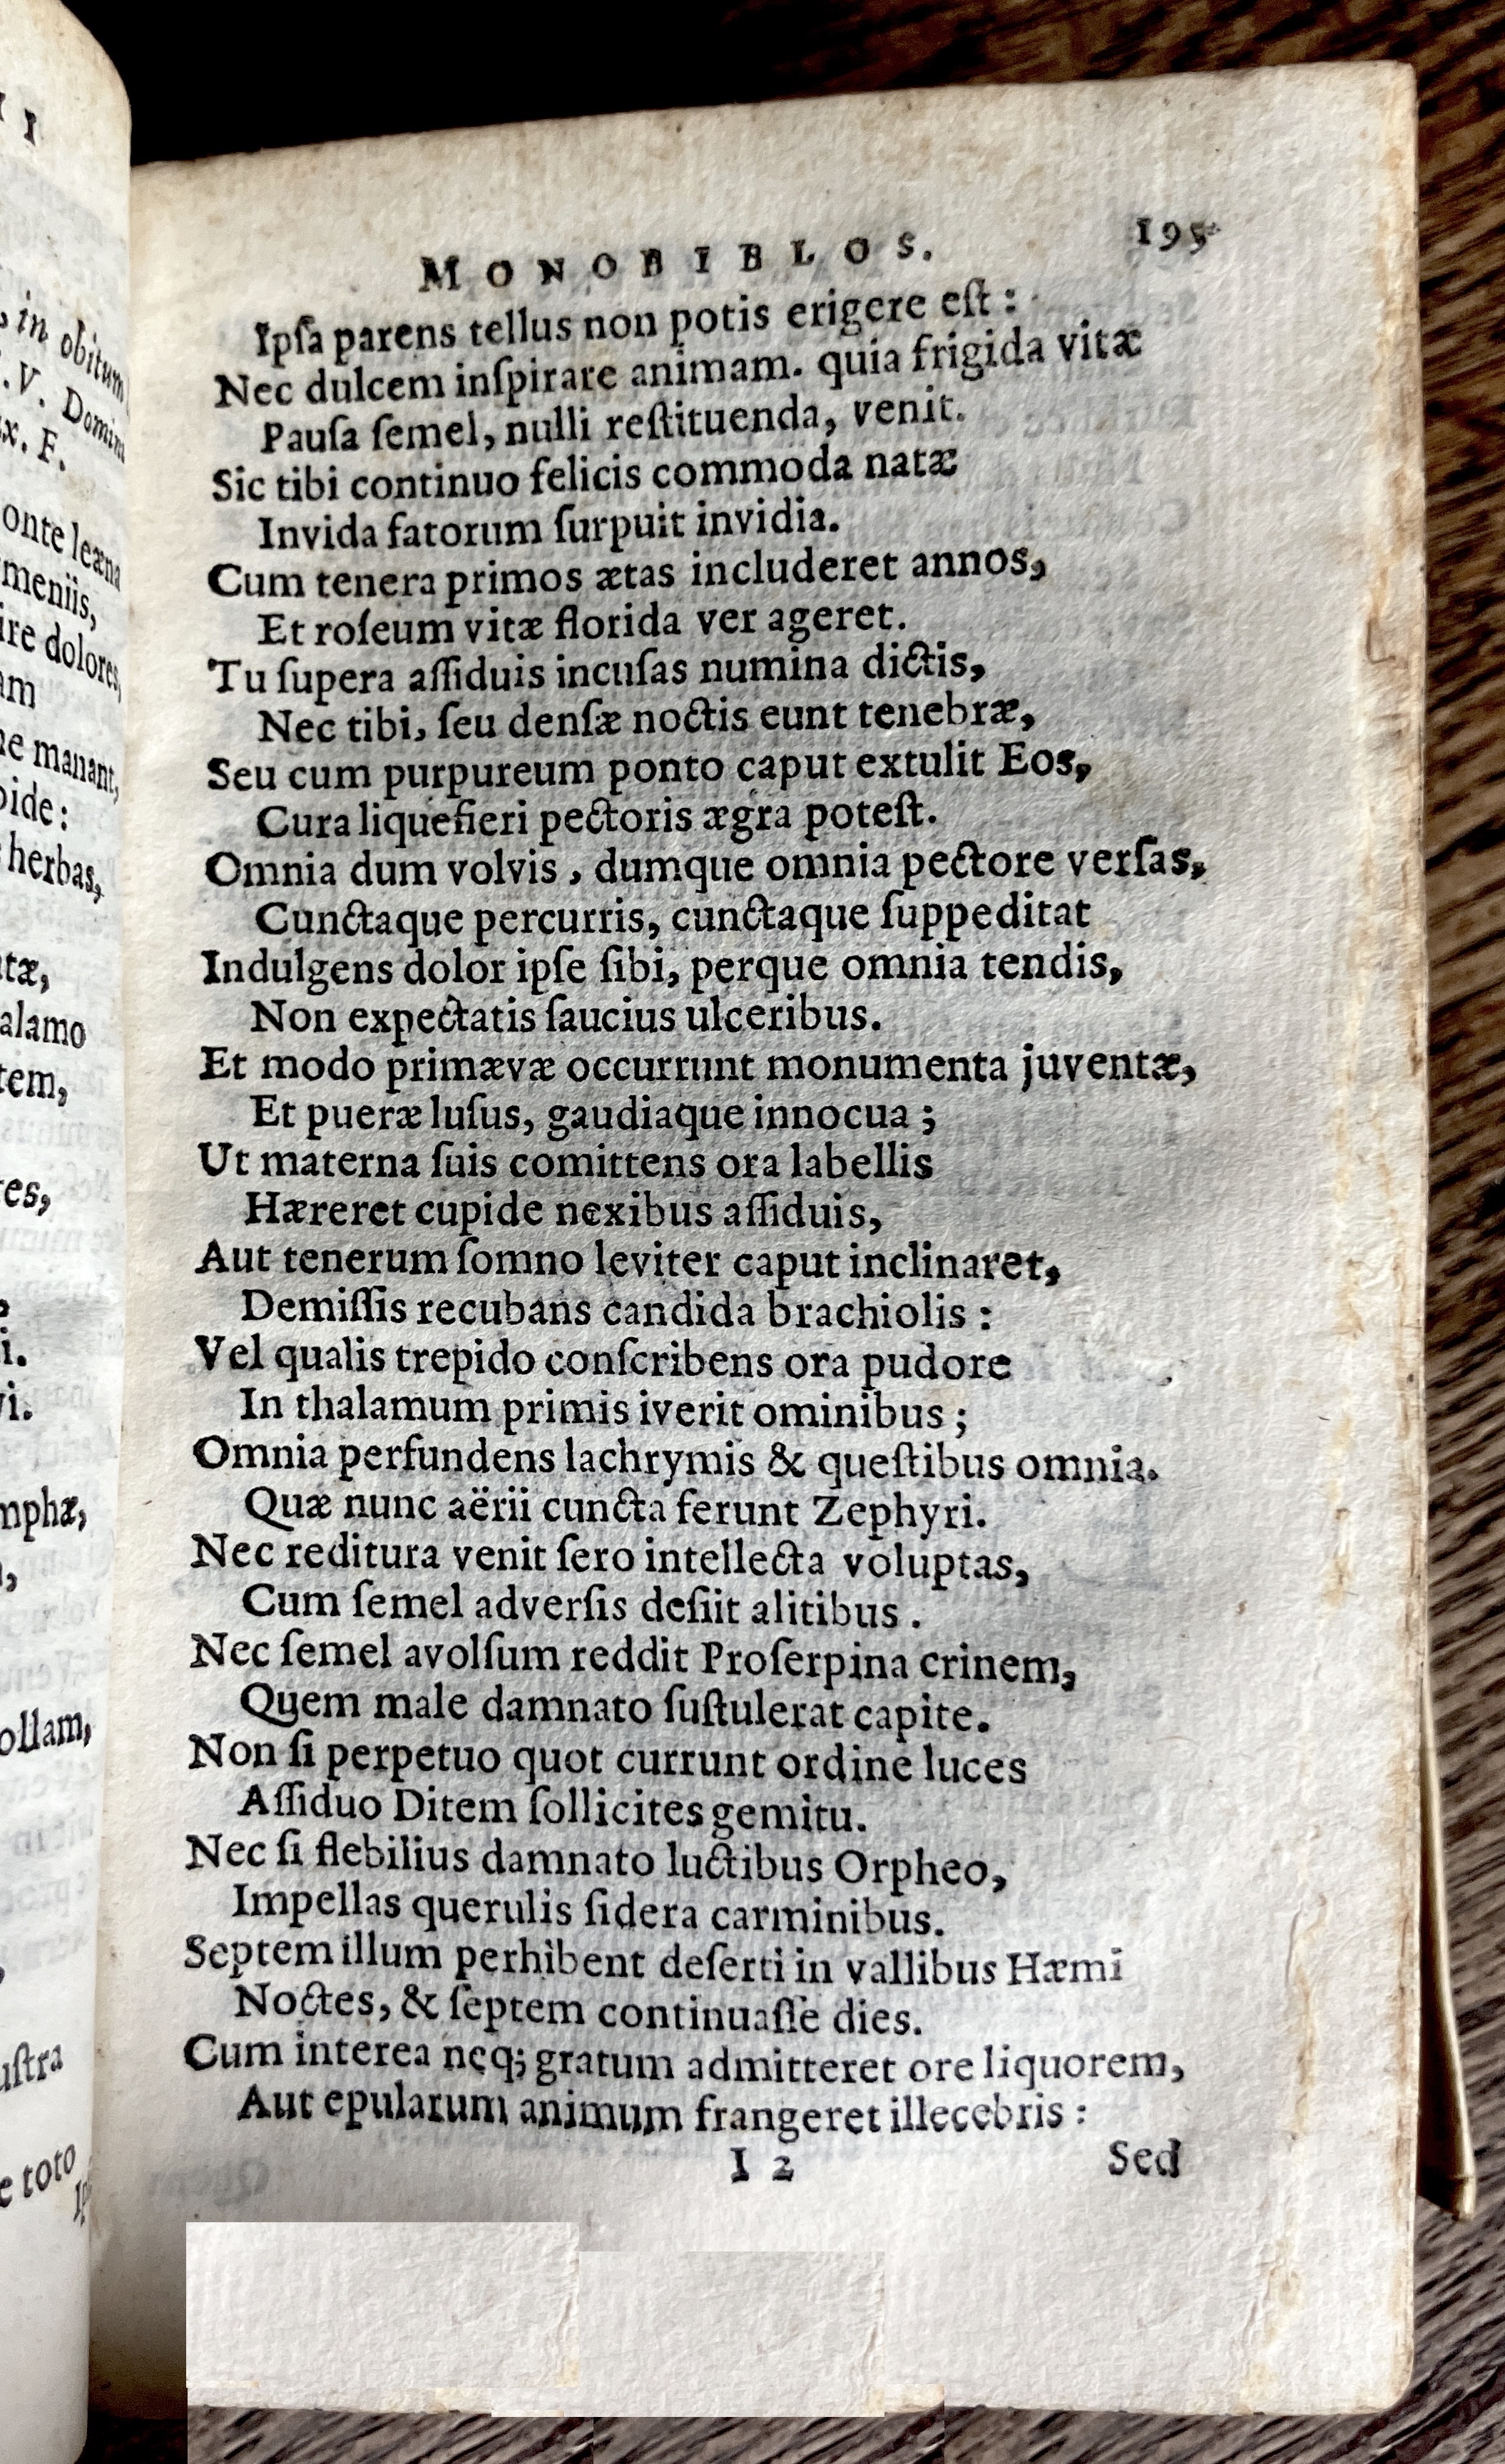 I I
in obitum
.V. Domini
x. F.
onte leæna
meniis,
ire dolores,
am
ne manant,
pide:
herbas,
tæ,
alamo
tem,
es,
i.
vi.
mphæ,
ollam,
uſtra
e toto
MONOBIBLOS. 195
Ipſa parens tellus non potis erigere eſt:
Nec dulcem inſpirare animam. quia frigida vitæ
Pauſa ſemel, nulli reſtituenda, venit.
Sic tibi continuo felicis commoda natæ
Invida fatorum ſurpuit invidia.
Cum tenera primos ætas includeret annos,
Et roſeum vitæ florida ver ageret.
Tu ſupera aſſiduis incuſas numina dictis,
Nec tibi, ſeu denſæ noctis eunt tenebræ,
Seu cum purpureum ponto caput extulit Eos,
Cura liquefieri pectoris ægra poteſt.
Omnia dum volvis, dumque omnia pectore verſas,
Cunctaque percurris, cunctaque ſuppeditat
Indulgens dolor ipſe ſibi, perque omnia tendis,
Non expectatis ſaucius ulceribus.
Et modo primævæ occurrunt monumenta juventæ,
Et pueræ luſus, gaudiaque innocua;
Ut materna ſuis comittens ora labellis
Hæreret cupide nexibus aſſiduis,
Aut tenerum ſomno leviter caput inclinaret,
Demiſſis recubans candida brachiolis:
Vel qualis trepido conſcribens ora pudore
In thalamum primis iverit ominibus;
Omnia perfundens lachrymis & queſtibus omnia.
Quæ nunc aërii cuncta ferunt Zephyri.
Nec reditura venit ſero intellecta voluptas,
Cum ſemel adverſis deſiit alitibus.
Nec ſemel avolſum reddit Proſerpina crinem,
Quem male damnato ſuſtulerat capite.
Non ſi perpetuo quot currunt ordine luces
Aſſiduo Ditem ſollicites gemitu.
Nec ſi flebilius damnato luctibus Orpheo,
Impellas querulis ſidera carminibus.
Septem illum perhibent deſerti in vallibus Hæmi
Noctes, & ſeptem continuaſſe dies.
Cum interea neq; gratum admitteret ore liquorem,
Aut epularum animum frangeret illecebris:
I 2 Sed